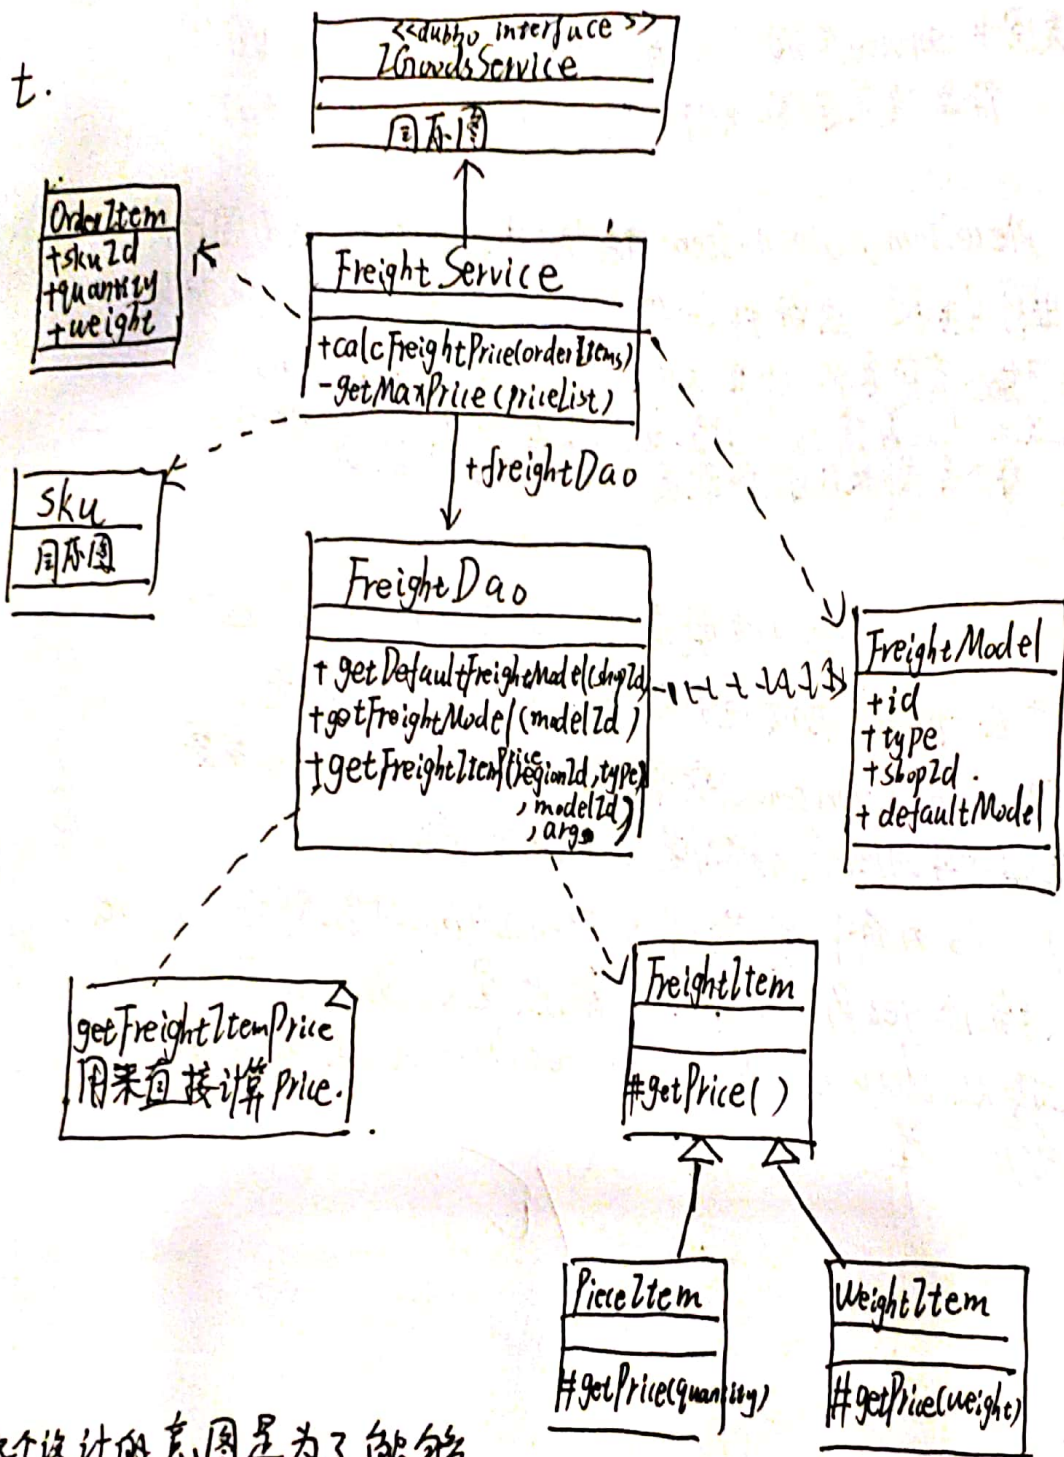 t.
<<dubbo interface>>
IGoodsService
同原图
OrderItem
+skuId
+quantity
+weight
FreightService
+calcFreightPrice(orderItems)
-getMaxPrice(priceList)
+freightDao
sku
同原图
FreightDao
+getDefaultFreightModel(shopId)
+getFreightModel(modelId)
+getFreightItemPrice(regionId,type,
,modelId)
,args
FreightModel
+id
+type
+shopId.
+defaultModel
getFreightItemPrice
用来直接计算price.
FreightItem
#getPrice()
PieceItem
#getPrice(quantity)
WeightItem
#getPrice(weight)
个设计的意图是为了能够